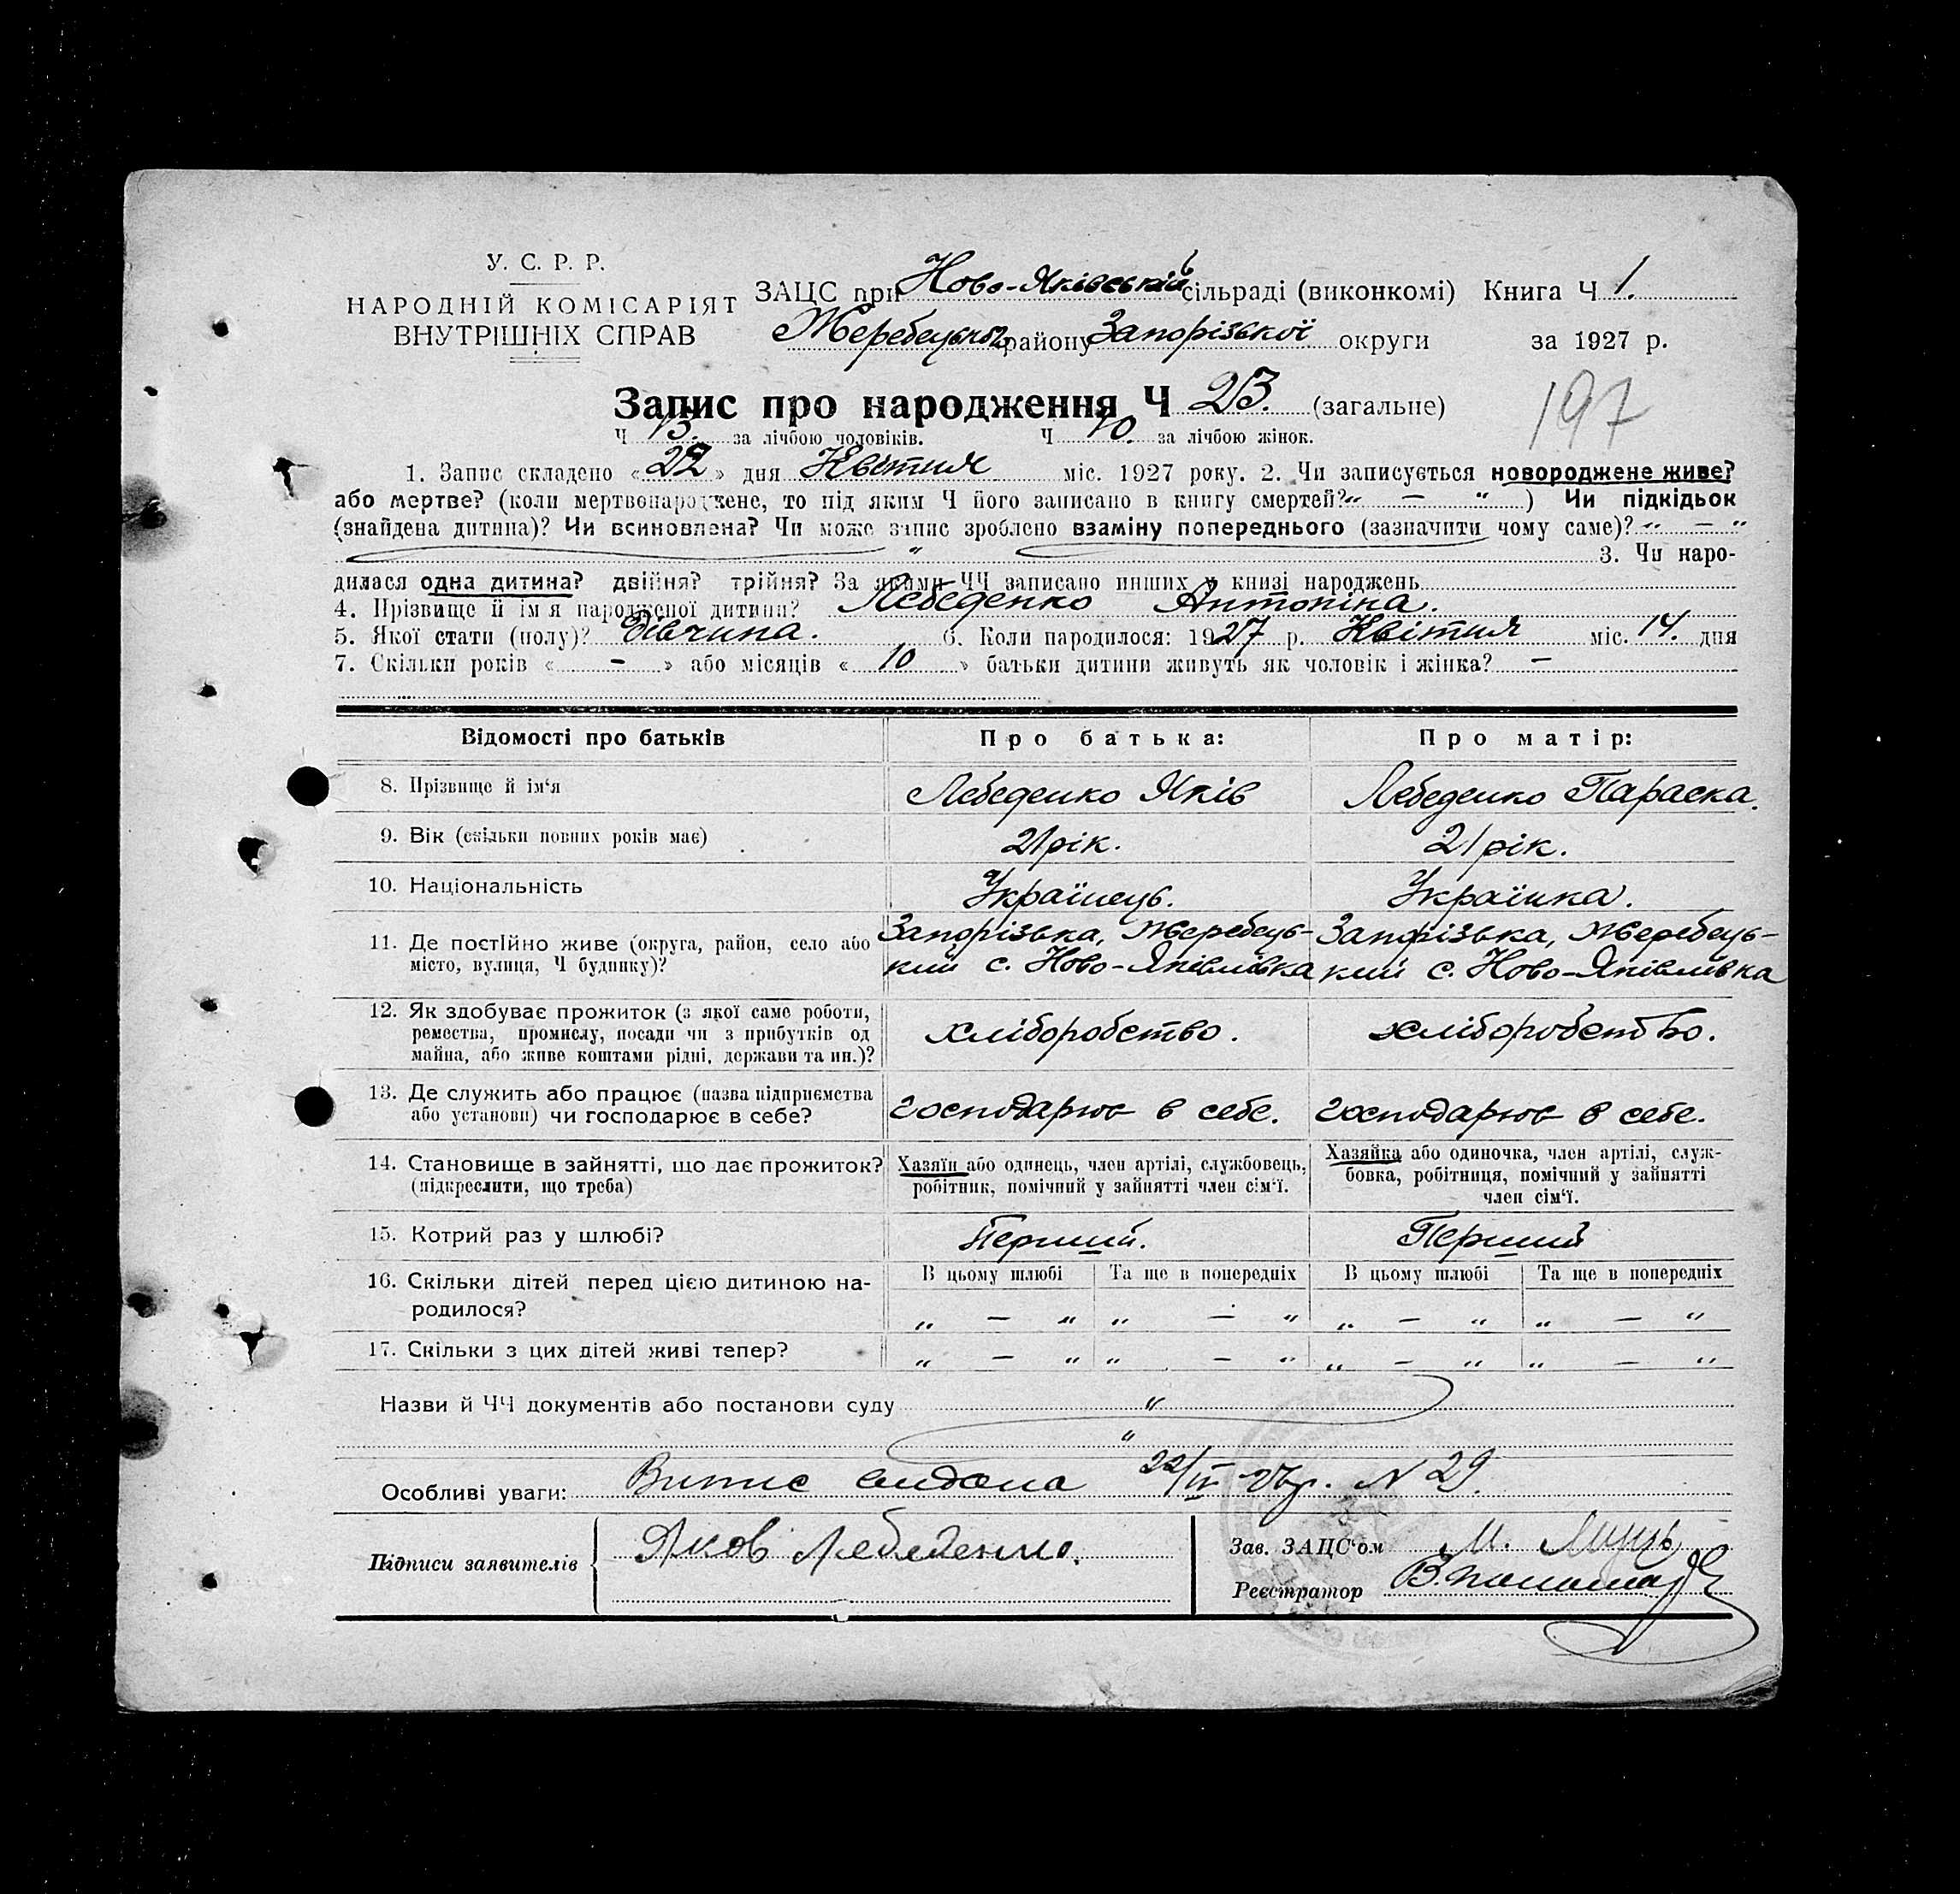 У. С. Р. Р.
НАРОДНІЙ КОМІСАРІЯТ
ВНУТРІШНІХ СПРАВ
ЗАЦС при Ново-Яківській сільраді (виконкомі) Книга Ч 1.
Жеребецького району Запорізької округи за 1927 р.
Запис про народження Ч 23. (загальне)
197
Ч 13. за лічбою чоловіків. Ч 10. за лічбою жінок.
1. Запис складено « 22 » дня Квітня міс. 1927 року. 2. Чи записується новороджене живе?
або мертве? (коли мертвонароджене, то під яким Ч його записано в книгу смертей? „ — “ ) Чи підкідьок
(знайдена дитина)? Чи всиновлена? Чи може запис зроблено взаміну попереднього (зазначити чому саме)? „ — “
“ 3. Чи наро-
дилася одна дитина? двійня? трійня? За якими ЧЧ записано инших у книзі народжень
4. Прізвище й ім'я народженої дитини? Лебеденко Антоніна.
5. Якої стати (полу)? Дівчина. 6. Коли народилося: 1927 р. Квітня міс. 14. дня
7. Скільки років « — » або місяців « 10 » батьки дитини живуть як чоловік і жінка? —
Відомості про батьків Про батька: Про матір:
8. Прізвище й ім'я Лебеденко Яків Лебеденко Параска.
9. Вік (скільки повних років має) 21 рік. 21 рік.
10. Національність Українець. Українка.
11. Де постійно живе (округа, район, село або Запорізька, Жеребець- Запорізька, Жеребець-
місто, вулиця, Ч будинку)? кий с. Ново-Яківлівка кий с. Ново-Яківлівка
12. Як здобуває прожиток (з якої саме роботи,
ремества, промислу, посади чи з прибутків од хліборобство. хліборобство.
майна, або живе коштами рідні, держави та ин.)?
13. Де служить або працює (назва підприємства
або установи) чи господарює в себе? господарює в себе. господарює в себе.
14. Становище в зайнятті, що дає прожиток? Хазяїн або одинець, член артілі, службовець, Хазяйка або одиночка, член артілі, служ-
(підкреслити, що треба) робітник, помічний у зайнятті член сім'ї. бовка, робітниця, помічний у зайнятті
член сім'ї.
15. Котрий раз у шлюбі? Перший. Перший
16. Скільки дітей перед цією дитиною на- В цьому шлюбі Та ще в попередніх В цьому шлюбі Та ще в попередніх
родилося? „ — “ „ — “ „ — “ „ — “
17. Скільки з цих дітей живі тепер? „ — “ „ — “ „ — “ „ — “
Назви й ЧЧ документів або постанови суду “
“
Особливі уваги: Витис видана 22/IV 27р. N 29.
Підписи заявителів Яков Лебеденко. Зав. ЗАЦС'ом М.
Реєстратор В.